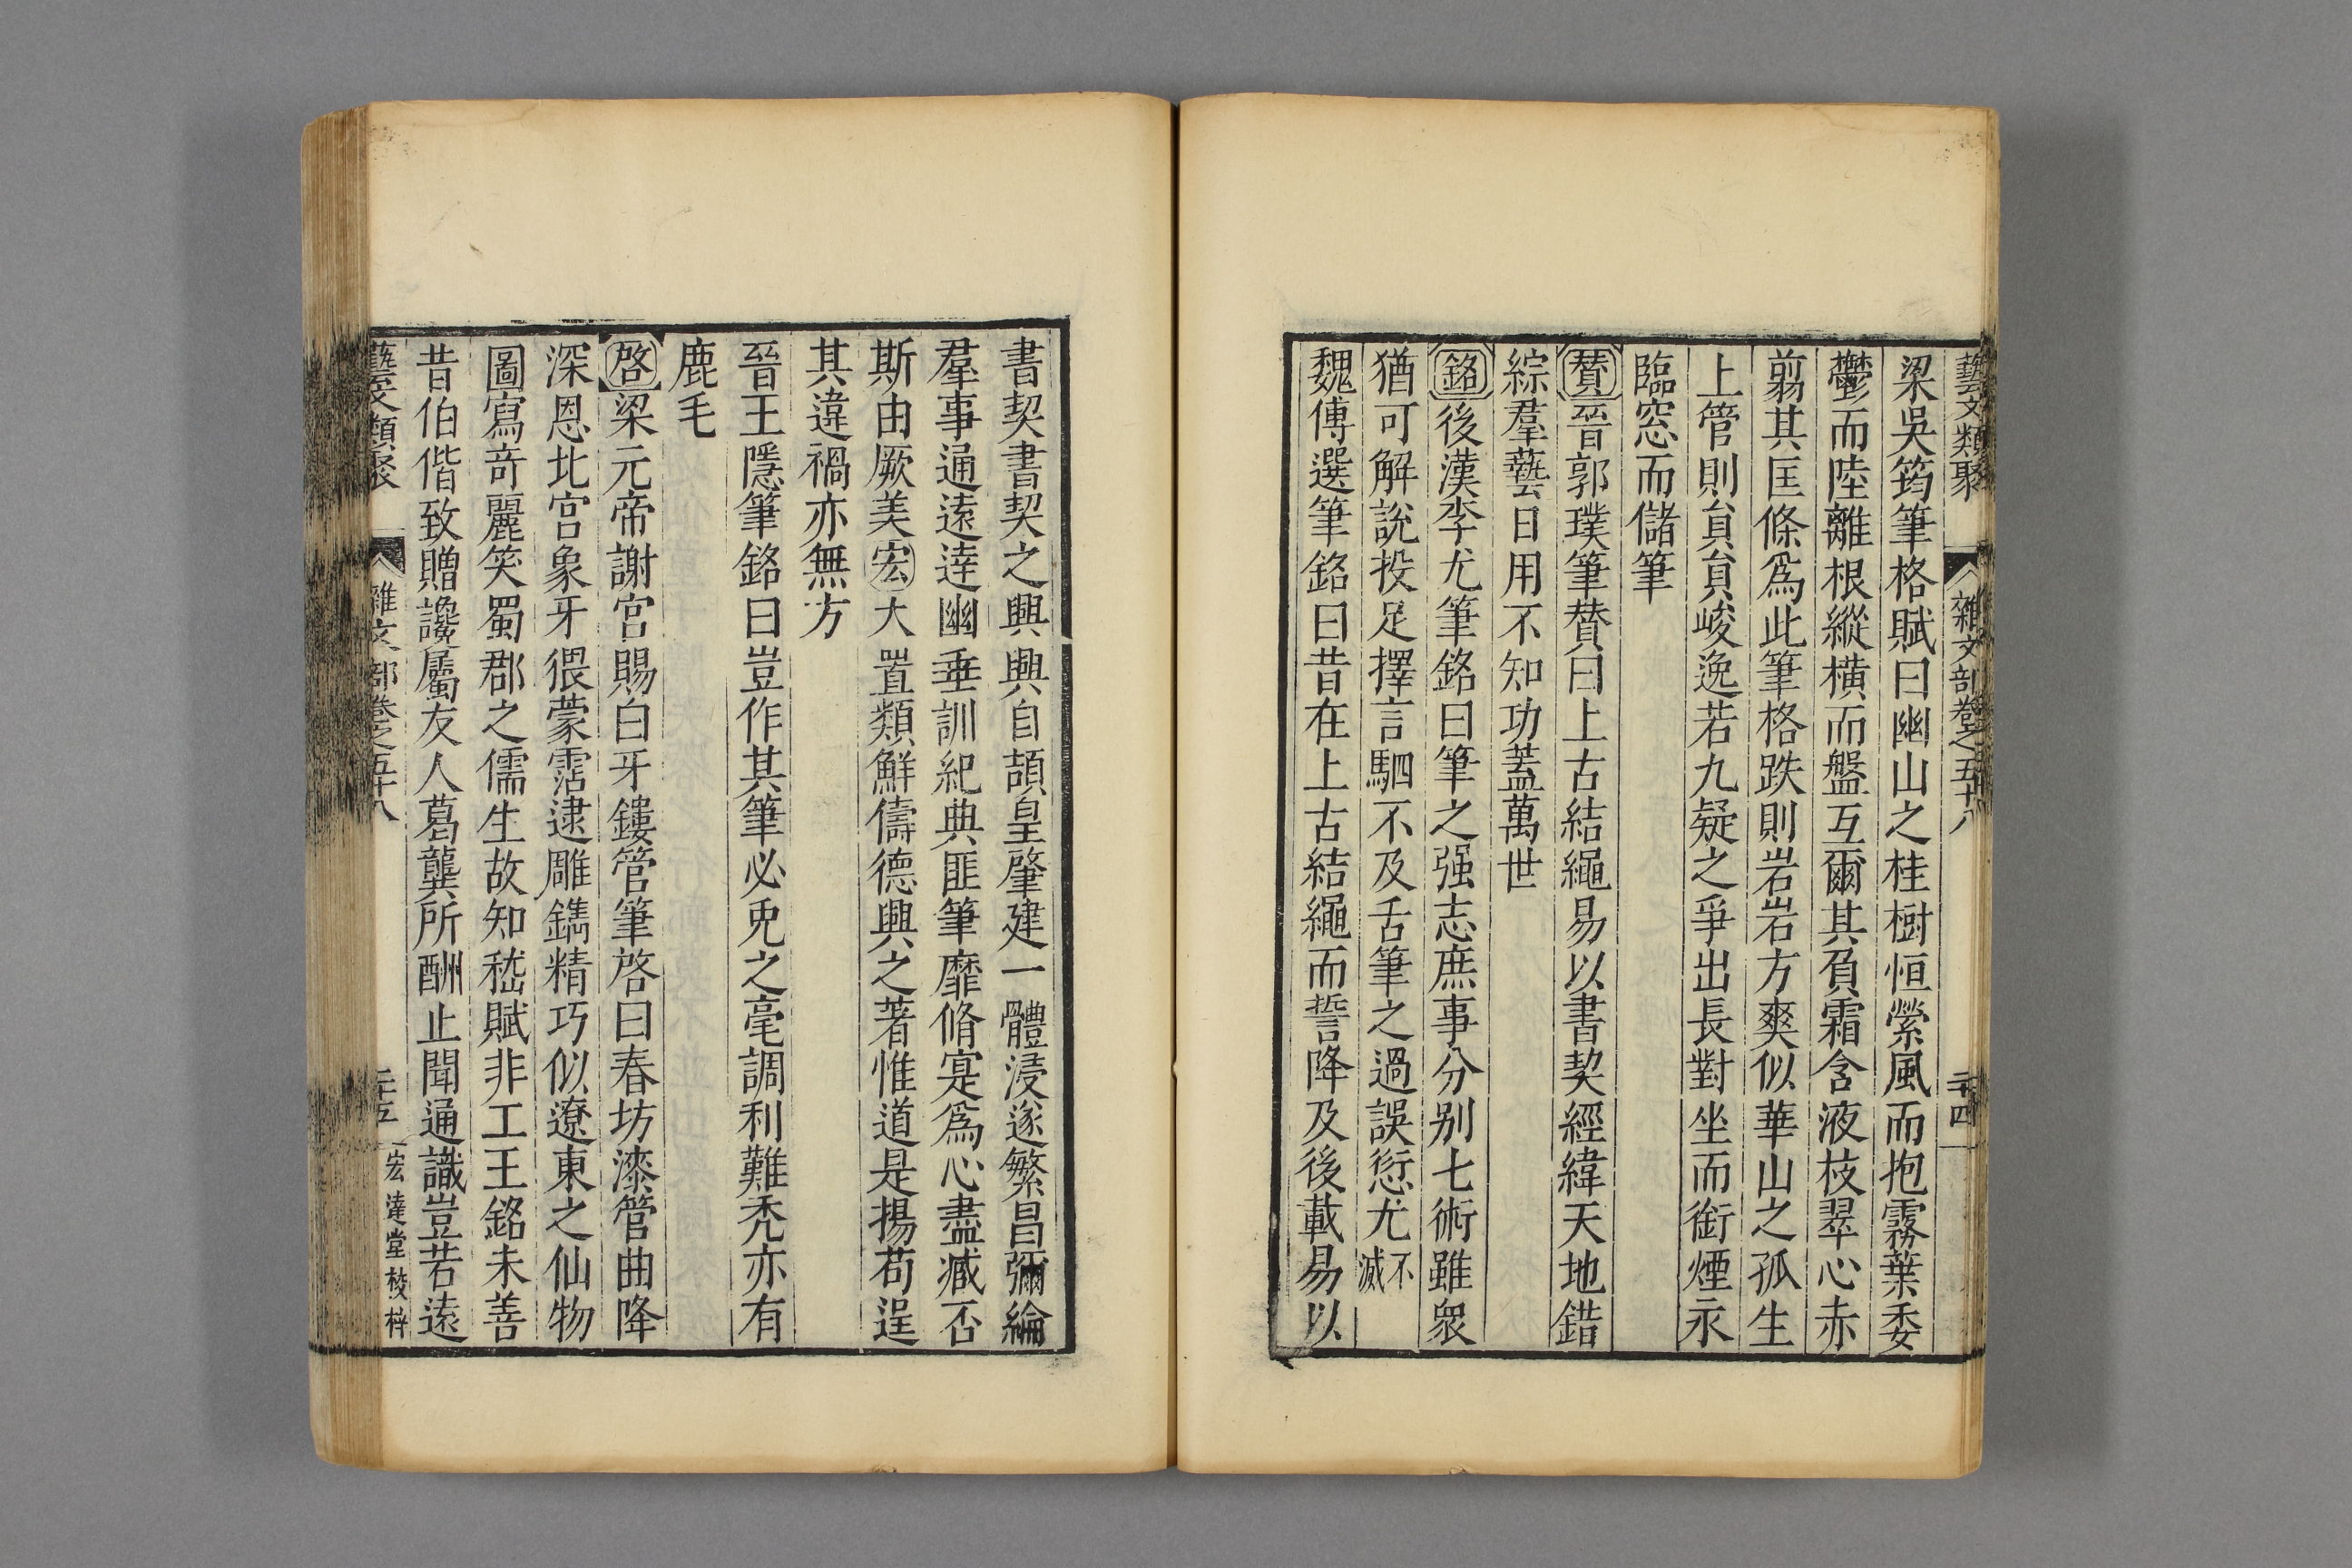 藝文類聚　雜文部卷之五十八　二十四
梁吳筠筆格賦曰幽山之桂樹恒縈風而抱霧葉委
鬱而陸離根縱橫而盤互爾其負霜含液枝翠心赤
翦其匡條爲此筆格趺則岩岩方爽似華山之孤生
上管則貟貟峻逸若九疑之爭出長對坐而銜煙永
臨窓而儲筆
贊晉郭璞筆贊曰上古結繩易以書契經緯天地錯
綜羣藝日用不知功蓋萬世
銘後漢李尤筆銘曰筆之强志庶事分别七術雖衆
猶可解說投足擇言駟不及舌筆之過誤愆尤不滅
魏傅選筆銘曰昔在上古結繩而誓降及後載易以
書契書契之興興自頡皇肇建一體浸遂繁昌彌綸
羣事通遠達幽垂訓紀典匪筆靡脩寔爲心盡臧否
斯由厥美宏大置類鮮儔德興之著惟道是揚苟逞
其違禍亦無方
晉王隱筆銘曰豈作其筆必兎之毫調利難禿亦有
鹿毛
啓梁元帝謝宮賜白牙鏤管筆啓曰春坊漆管曲降
深恩北宮象牙猥蒙霑逮雕鐫精巧似遼東之仙物
圖寫奇麗笑蜀郡之儒生故知嵇賦非工王銘未善
昔伯偕致贈纔屬友人葛龔所酬止聞通識豈若遠
藝文類聚　雜文部卷之五十八　二十五　宏達堂校梓